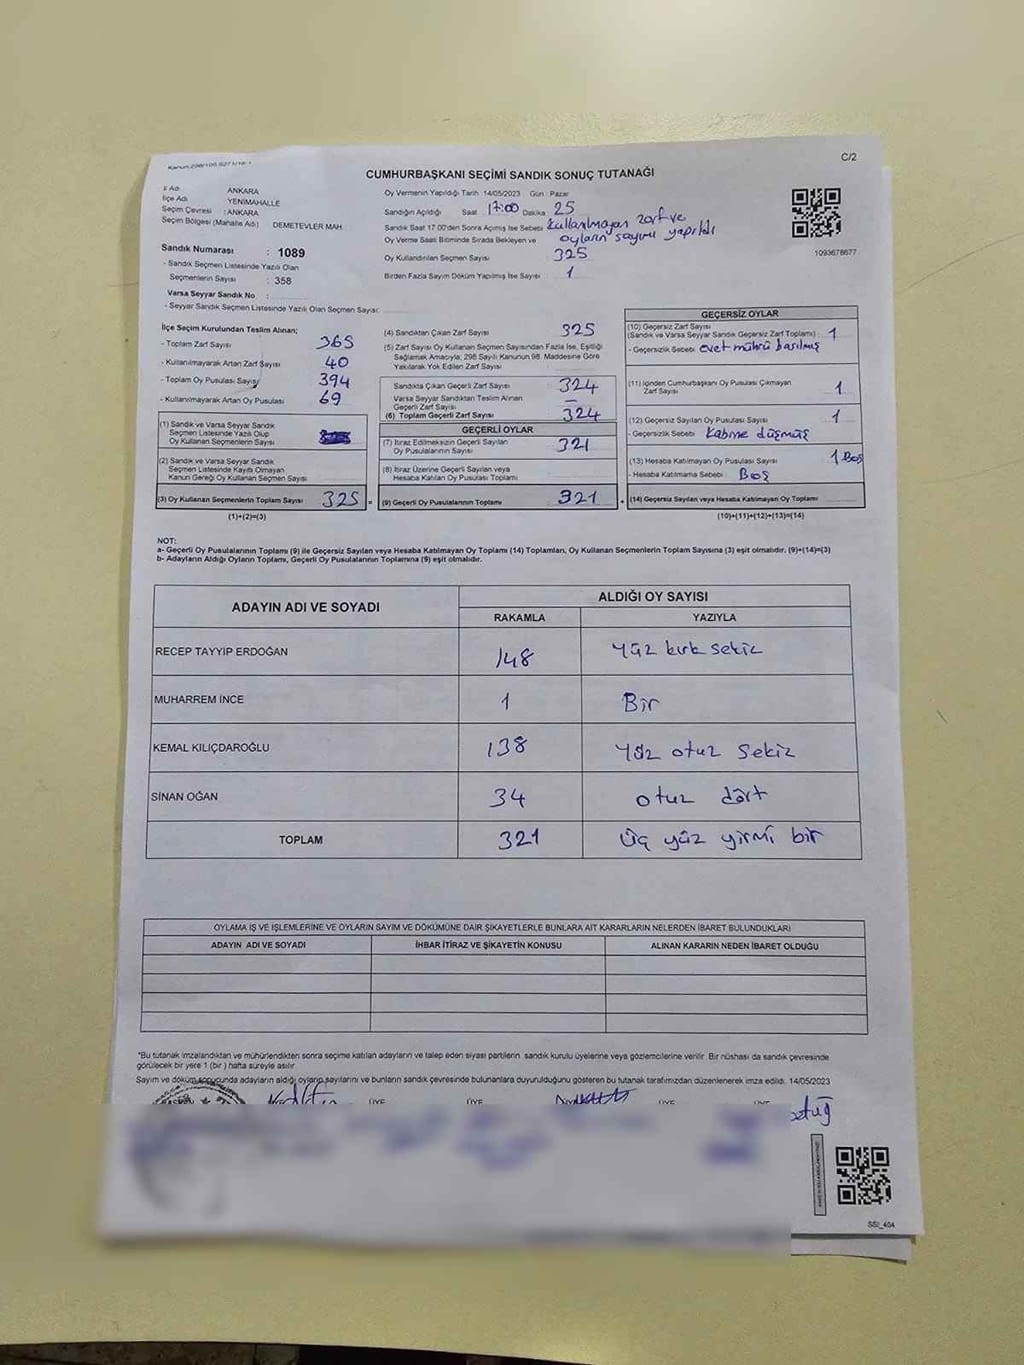 C/2
CUMHURBAŞKANI SEÇİMİ SANDIK SONUÇ TUTANAĞI
İl Adı ANKARA
İlçe Adı YENİMAHALLE
Seçim Çevresi : ANKARA
Seçim Bölgesi (Mahalle Adı) DEMETEVLER MAH.
Sandık Numarası : 1089
- Sandık Seçmen Listesinde Yazılı Olan
Seçmenlerin Sayısı : 358
Varsa Seyyar Sandık No :
- Seyyar Sandık Seçmen Listesinde Yazılı Olan Seçmen Sayısı:
Oy Vermenin Yapıldığı Tarih 14/05/2023 Gün : Pazar
Sandığın Açıldığı Saat 17:00 Dakika 25
Sandık Saat 17.00'den Sonra Açılmış İse Sebebi Kullanılmayan zarf ve
oyların sayımı yapıldı
Oy Verme Saati Bitiminde Sırada Bekleyen ve
Oy Kullandırılan Seçmen Sayısı 325
Birden Fazla Sayım Döküm Yapılmış İse Sayısı 1
1093678677
İlçe Seçim Kurulundan Teslim Alınan;
- Toplam Zarf Sayısı 365
- Kullanılmayarak Artan Zarf Sayısı 40
- Toplam Oy Pusulası Sayısı 394
- Kullanılmayarak Artan Oy Pusulası 69
(1) Sandık ve Varsa Seyyar Sandık
Seçmen Listesinde Yazılı Olup
Oy Kullanan Seçmenlerin Sayısı
(2) Sandık ve Varsa Seyyar Sandık
Seçmen Listesinde Kayıtlı Olmayan
Kanun Gereği Oy Kullanan Seçmen Sayısı
(3) Oy Kullanan Seçmenlerin Toplam Sayısı 325 =
(1)+(2)=(3)
(4) Sandıktan Çıkan Zarf Sayısı 325
(5) Zarf Sayısı Oy Kullanan Seçmen Sayısından Fazla İse, Eşitliği
Sağlamak Amacıyla, 298 Sayılı Kanunun 98. Maddesine Göre
Yakılarak Yok Edilen Zarf Sayısı
Sandıkta Çıkan Geçerli Zarf Sayısı 324
Varsa Seyyar Sandıktan Teslim Alınan
Geçerli Zarf Sayısı –
(6) Toplam Geçerli Zarf Sayısı 324
GEÇERLİ OYLAR
(7) İtiraz Edilmeksizin Geçerli Sayılan
Oy Pusulalarının Sayısı 321
(8) İtiraz Üzerine Geçerli Sayılan veya
Hesaba Katılan Oy Pusulası Toplamı
(9) Geçerli Oy Pusulalarının Toplamı 321 +
GEÇERSİZ OYLAR
(10) Geçersiz Zarf Sayısı
(Sandık ve Varsa Seyyar Sandık Geçersiz Zarf Toplamı) 1
- Geçersizlik Sebebi evet mührü basılmış
(11) İçinden Cumhurbaşkanı Oy Pusulası Çıkmayan
Zarf Sayısı 1
(12) Geçersiz Sayılan Oy Pusulası Sayısı 1
- Geçersizlik Sebebi Kabine düşmüş
(13) Hesaba Katılmayan Oy Pusulası Sayısı 1 Boş
- Hesaba Katılmama Sebebi Boş
(14) Geçersiz Sayılan veya Hesaba Katılmayan Oy Toplamı
(10)+(11)+(12)+(13)=(14)
NOT:
a- Geçerli Oy Pusulalarının Toplamı (9) ile Geçersiz Sayılan veya Hesaba Katılmayan Oy Toplamı (14) Toplamları, Oy Kullanan Seçmenlerin Toplam Sayısına (3) eşit olmalıdır. (9)+(14)=(3)
b- Adayların Aldığı Oyların Toplamı, Geçerli Oy Pusulalarının Toplamına (9) eşit olmalıdır.
ADAYIN ADI VE SOYADI ALDIĞI OY SAYISI
RAKAMLA YAZIYLA
RECEP TAYYİP ERDOĞAN 148 Yüz kırk sekiz
MUHARREM İNCE 1 Bir
KEMAL KILIÇDAROĞLU 138 Yüz otuz sekiz
SİNAN OĞAN 34 otuz dört
TOPLAM 321 Üç yüz yirmi bir
OYLAMA İŞ VE İŞLEMLERİNE VE OYLARIN SAYIM VE DÖKÜMÜNE DAİR ŞİKAYETLERLE BUNLARA AİT KARARLARIN NELERDEN İBARET BULUNDUKLARI
ADAYIN ADI VE SOYADI İHBAR İTİRAZ VE ŞİKAYETİN KONUSU ALINAN KARARIN NEDEN İBARET OLDUĞU
*Bu tutanak imzalandıktan ve mühürlendikten sonra seçime katılan adayların ve talep eden siyasi partilerin sandık kurulu üyelerine veya gözlemcilerine verilir. Bir nüshası da sandık çevresinde
görülecek bir yere 1 (bir) hafta süreyle asılır
Sayım ve döküm sonucunda adayların aldığı oyların sayılarını ve bunların sandık çevresinde bulunanlara duyurulduğunu gösteren bu tutanak tarafımızdan düzenlenerek imza edildi. 14/05/2023
ÜYE ÜYE ÜYE
SSI_404